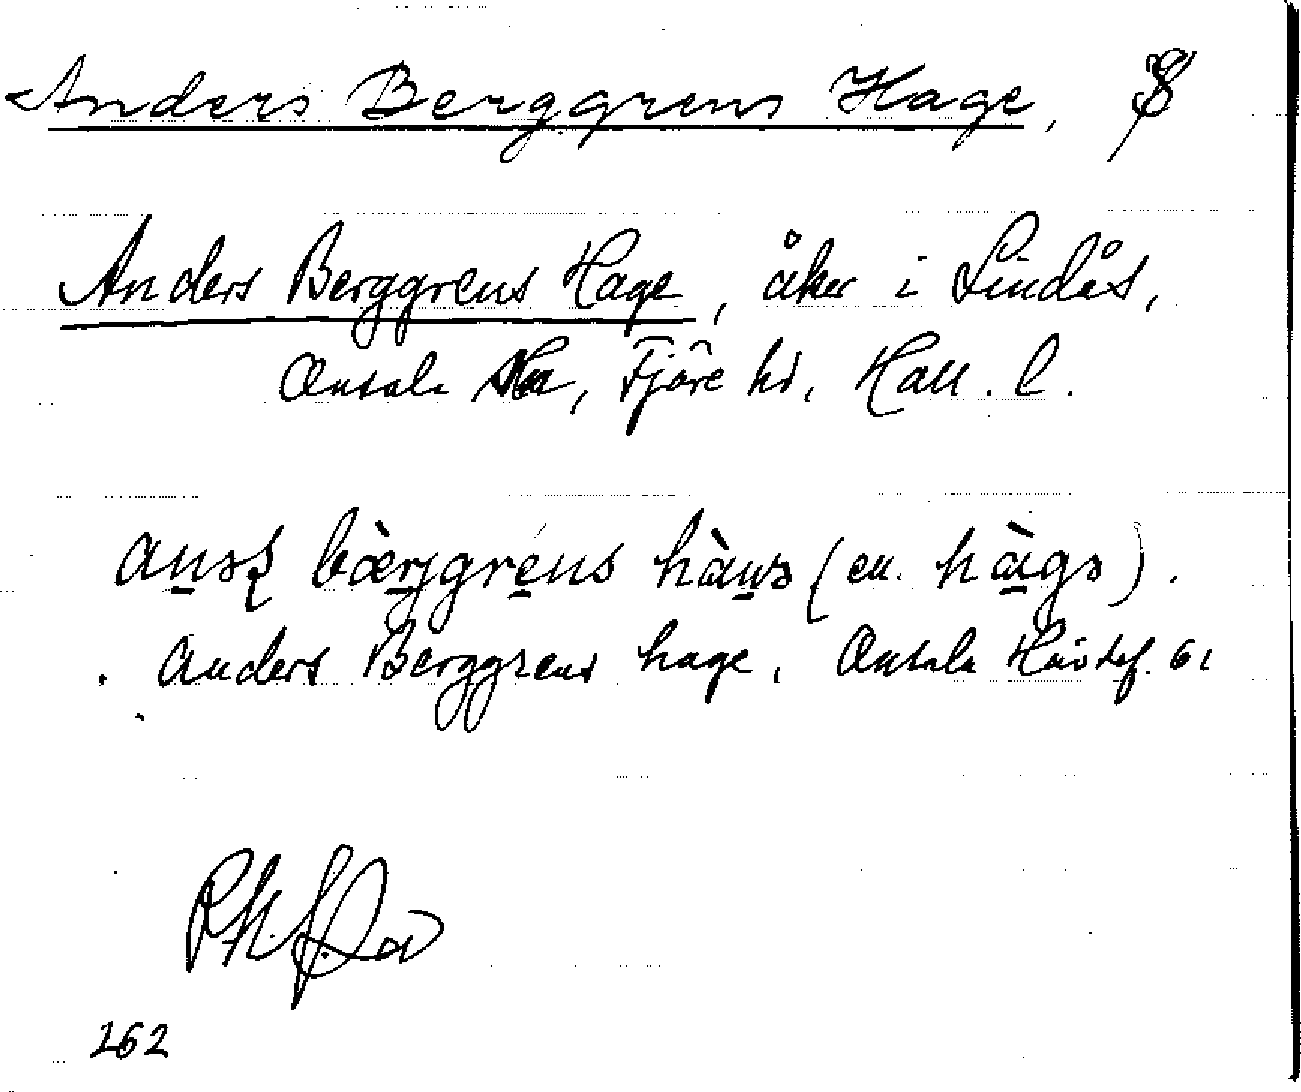 Anders Berggrens Hage,
Anders Berggrens Hage, åker i Lindås,
Onsala sn, Fjäre hd, Hall. l.
bærjgréns hàws (en. hàgs).
Anders Berggrens hage. Onsala 61
262